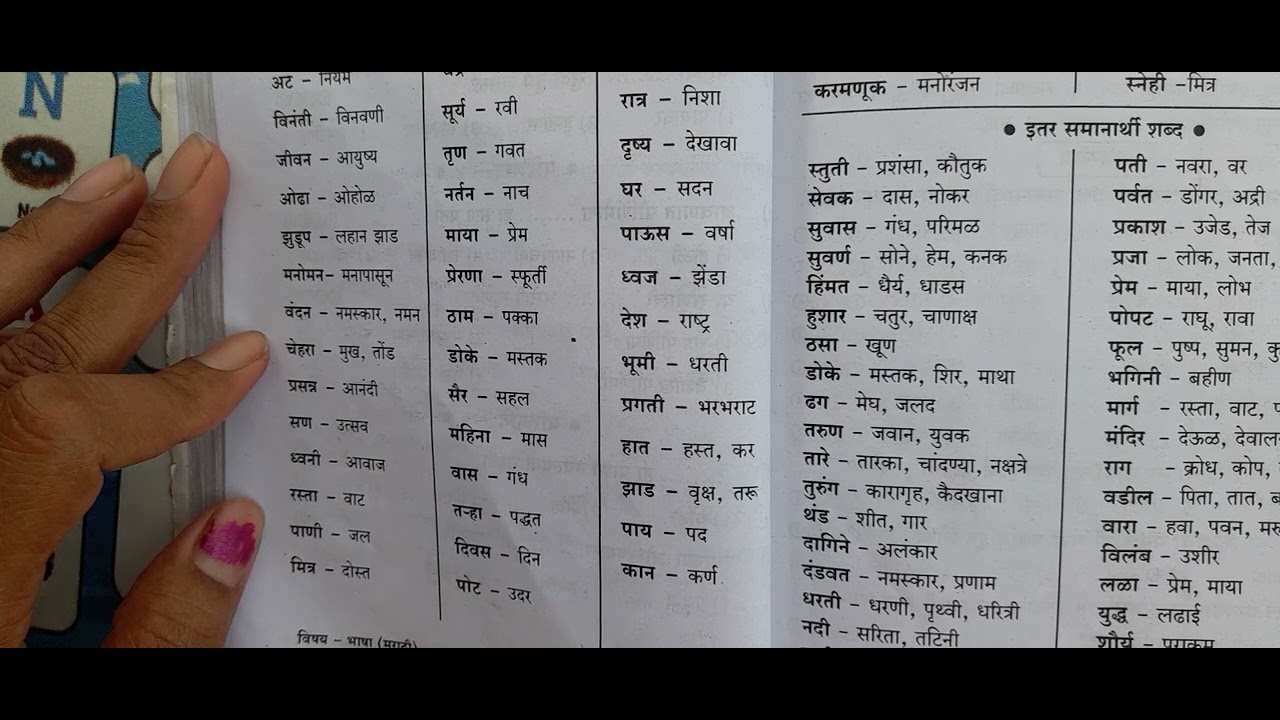 N
अट – नियम
विनंती – विनवणी
जीवन – आयुष्य
ओढा – ओहोळ
झुडूप – लहान झाड
मनोमन– मनापासून
वंदन – नमस्कार, नमन
चेहरा – मुख, तोंड
प्रसन्न – आनंदी
सण – उत्सव
ध्वनी – आवाज
रस्ता – वाट
पाणी – जल
मित्र – दोस्त
विषय – भाषा (मराठी)
सूर्य – रवी
तृण – गवत
नर्तन – नाच
माया – प्रेम
प्रेरणा – स्फूर्ती
ठाम – पक्का
डोके – मस्तक
सैर – सहल
महिना – मास
वास – गंध
तऱ्हा – पद्धत
दिवस – दिन
पोट – उदर
रात्र – निशा
दृष्य – देखावा
घर – सदन
पाऊस – वर्षा
ध्वज – झेंडा
देश – राष्ट्र
भूमी – धरती
प्रगती – भरभराट
हात – हस्त, कर
झाड – वृक्ष, तरू
पाय – पद
कान – कर्ण
करमणूक – मनोरंजन
स्नेही –मित्र
• इतर समानार्थी शब्द •
स्तुती – प्रशंसा, कौतुक
सेवक – दास, नोकर
सुवास – गंध, परिमळ
सुवर्ण – सोने, हेम, कनक
हिंमत – धैर्य, धाडस
हुशार – चतुर, चाणाक्ष
ठसा – खूण
डोके – मस्तक, शिर, माथा
ढग – मेघ, जलद
तरुण – जवान, युवक
तारे – तारका, चांदण्या, नक्षत्रे
तुरुंग – कारागृह, कैदखाना
थंड – शीत, गार
दागिने – अलंकार
दंडवत – नमस्कार, प्रणाम
धरती – धरणी, पृथ्वी, धरित्री
नदी – सरिता, तटिनी
पती – नवरा, वर
पर्वत – डोंगर, अद्री
प्रकाश – उजेड, तेज
प्रजा – लोक, जनता,
प्रेम – माया, लोभ
पोपट – राघू, रावा
फूल – पुष्प, सुमन,
भगिनी – बहीण
मार्ग – रस्ता, वाट,
मंदिर – देऊळ,
राग – क्रोध, कोप,
वडील – पिता, तात,
वारा – हवा, पवन,
विलंब – उशीर
लळा – प्रेम, माया
युद्ध – लढाई
शौर्य – पराक्रम